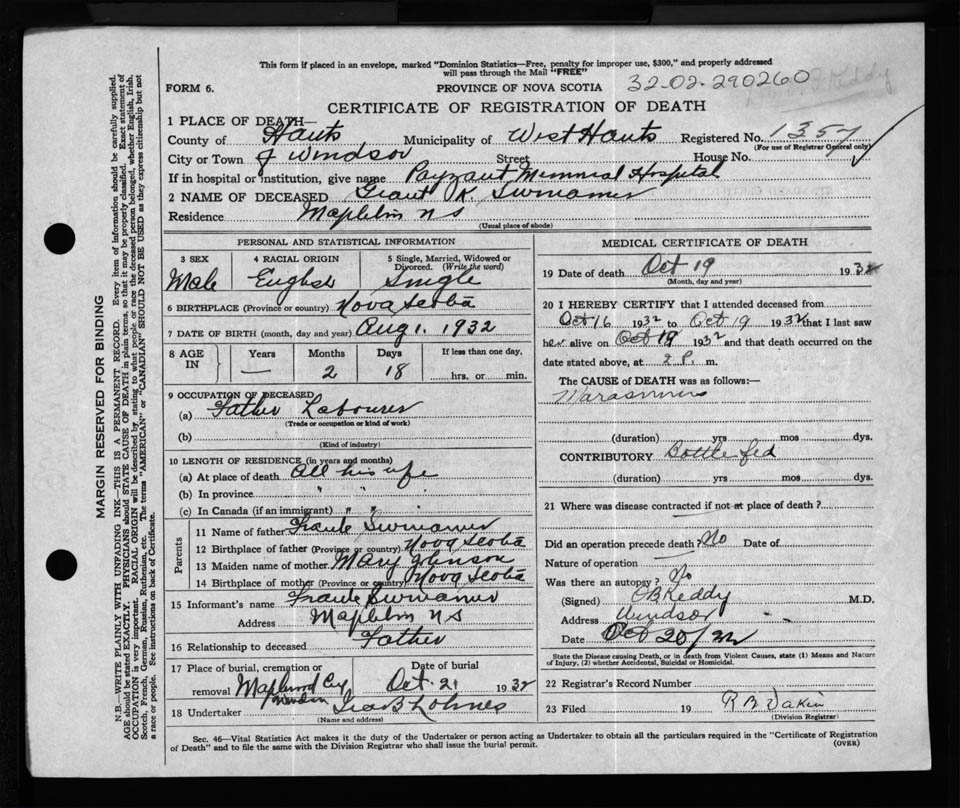 This form if placed in an envelope, marked "Dominion Statistics—Free, penalty for improper use, $300," and properly addressed
will pass through the Mail "FREE"
32-02-290260
FORM 6.
PROVINCE OF NOVA SCOTIA
CERTIFICATE OF REGISTRATION OF DEATH
1 PLACE OF DEATH—
County of Hants Municipality of West Hants Registered No. 1357
(For use of Registrar General only)
City or Town of Windsor Street House No.
If in hospital or institution, give name Payzant Memorial Hospital
2 NAME OF DECEASED Grant R.
Residence N S
(Usual place of abode)
PERSONAL AND STATISTICAL INFORMATION
3 SEX 4 RACIAL ORIGIN 5 Single, Married, Widowed or Divorced. (Write the word)
Male English Single
6 BIRTHPLACE (Province or country) Nova Scotia
7 DATE OF BIRTH (month, day and year) Aug 1. 1932
8 AGE IN Years Months Days If less than one day,
— 2 18 hrs. or min.
9 OCCUPATION OF DECEASED
(a) Father Labourer
(Trade or occupation or kind of work)
(b)
(Kind of industry)
10 LENGTH OF RESIDENCE (in years and months)
(a) At place of death All his life
(b) In province " " "
(c) In Canada (if an immigrant) " " "
Parents
11 Name of father
12 Birthplace of father (Province or country) Nova Scotia
13 Maiden name of mother Mary
14 Birthplace of mother (Province or country) Nova Scotia
15 Informant's name
Address N S
16 Relationship to deceased Father
17 Place of burial, cremation or removal Windsor
Date of burial Oct. 21 1932
18 Undertaker Ira B Lohnes
(Name and address)
MEDICAL CERTIFICATE OF DEATH
19 Date of death Oct 19 1932
(Month, day and year)
20 I HEREBY CERTIFY that I attended deceased from
Oct 16 1932 to Oct 19 1932 that I last saw
him alive on Oct 19 1932 and that death occurred on the
date stated above, at 2 P. m.
The CAUSE of DEATH was as follows:—
Marasmus
(duration) yrs mos dys.
CONTRIBUTORY Bottle fed
(duration) yrs mos dys.
21 Where was disease contracted if not at place of death?
Did an operation precede death? No Date of
Nature of operation
Was there an autopsy? No
(Signed) Reddy M.D.
Address Windsor
Date Oct 20/32
State the Disease causing Death, or in death from Violent Causes, state (1) Means and Nature
of Injury, (2) whether Accidental, Suicidal or Homicidal.
22 Registrar's Record Number
23 Filed 19 R B Dakin
(Division Registrar)
Sec. 46—Vital Statistics Act makes it the duty of the Undertaker or person acting as Undertaker to obtain all the particulars required in the "Certificate of Registration
of Death" and to file the same with the Division Registrar who shall issue the burial permit.
(OVER)
MARGIN RESERVED FOR BINDING
N.B.—WRITE PLAINLY WITH UNFADING INK—THIS IS A PERMANENT RECORD. Every item of information should be carefully supplied.
AGE should be stated EXACTLY. PHYSICIANS should STATE CAUSE OF DEATH in plain terms, so that it may be properly classified. Exact statement of
OCCUPATION is very important. RACIAL ORIGIN will be described by stating to what people or race the deceased person belonged, whether English, Irish,
Scotch, French, German, Russian, Ruthenian, etc. The terms "AMERICAN" or "CANADIAN" SHOULD NOT BE USED as they express citizenship but not
a race or people. See instructions on back of Certificate.